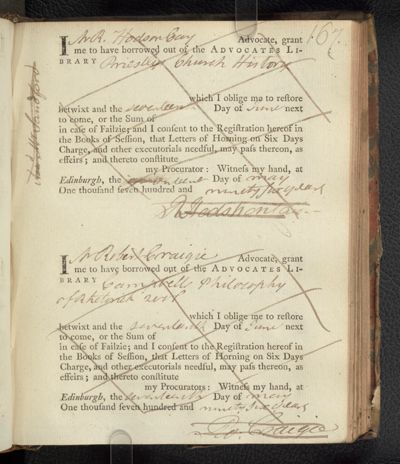 167
I Mr R. Hodson Cay Advocate, grant
me to have borrowed out of the ADVOCATES LI-
BRARY Priestley Church History
which I oblige me to restore
betwixt and the seventeenth Day of June next
to come, or the Sum of
in case of Failzie; and I consent to the Registration hereof in
the Books of Session, that Letters of Horning on Six Days
Charge, and other executorials needful, may pass thereon, as
effeirs; and thereto constitute
my Procurator: Witness my hand, at
Edinburgh, the seventeenth Day of may
One thousand seven hundred and ninety six years
R Hodshon Cay
I Mr Robert Craigie Advocate, grant
me to have borrowed out of the ADVOCATES LI-
BRARY Campbells Philosophy
of Rhetorick 2 vols
which I oblige me to restore
betwixt and the seventeenth Day of June next
to come, or the Sum of
in case of Failzie; and I consent to the Registration hereof in
the Books of Session, that Letters of Horning on Six Days
Charge, and other executorials needful, may pass thereon, as
effeirs; and thereto constitute
my Procurators: Witness my hand, at
Edinburgh, the seventeenth Day of may
One thousand seven hundred and ninety six years
Ro. Craigie